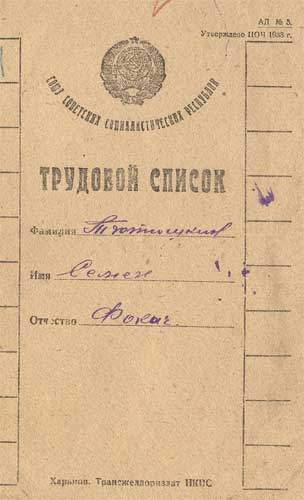 АЛ № 5.
Утверждено ЦОЧ 1933 г.
СОЮЗ СОВЕТСКИХ СОЦИАЛИСТИЧЕСКИХ РЕСПУБЛИК
ТРУДОВОЙ СПИСОК
Фамилия
Имя Семен
Отчество Фокич.
Харьков. Трансжелдориздат НКПС